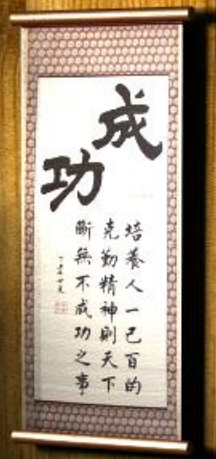 成功
培養人一己百的
克勤精神則天下
斷無不成功之事